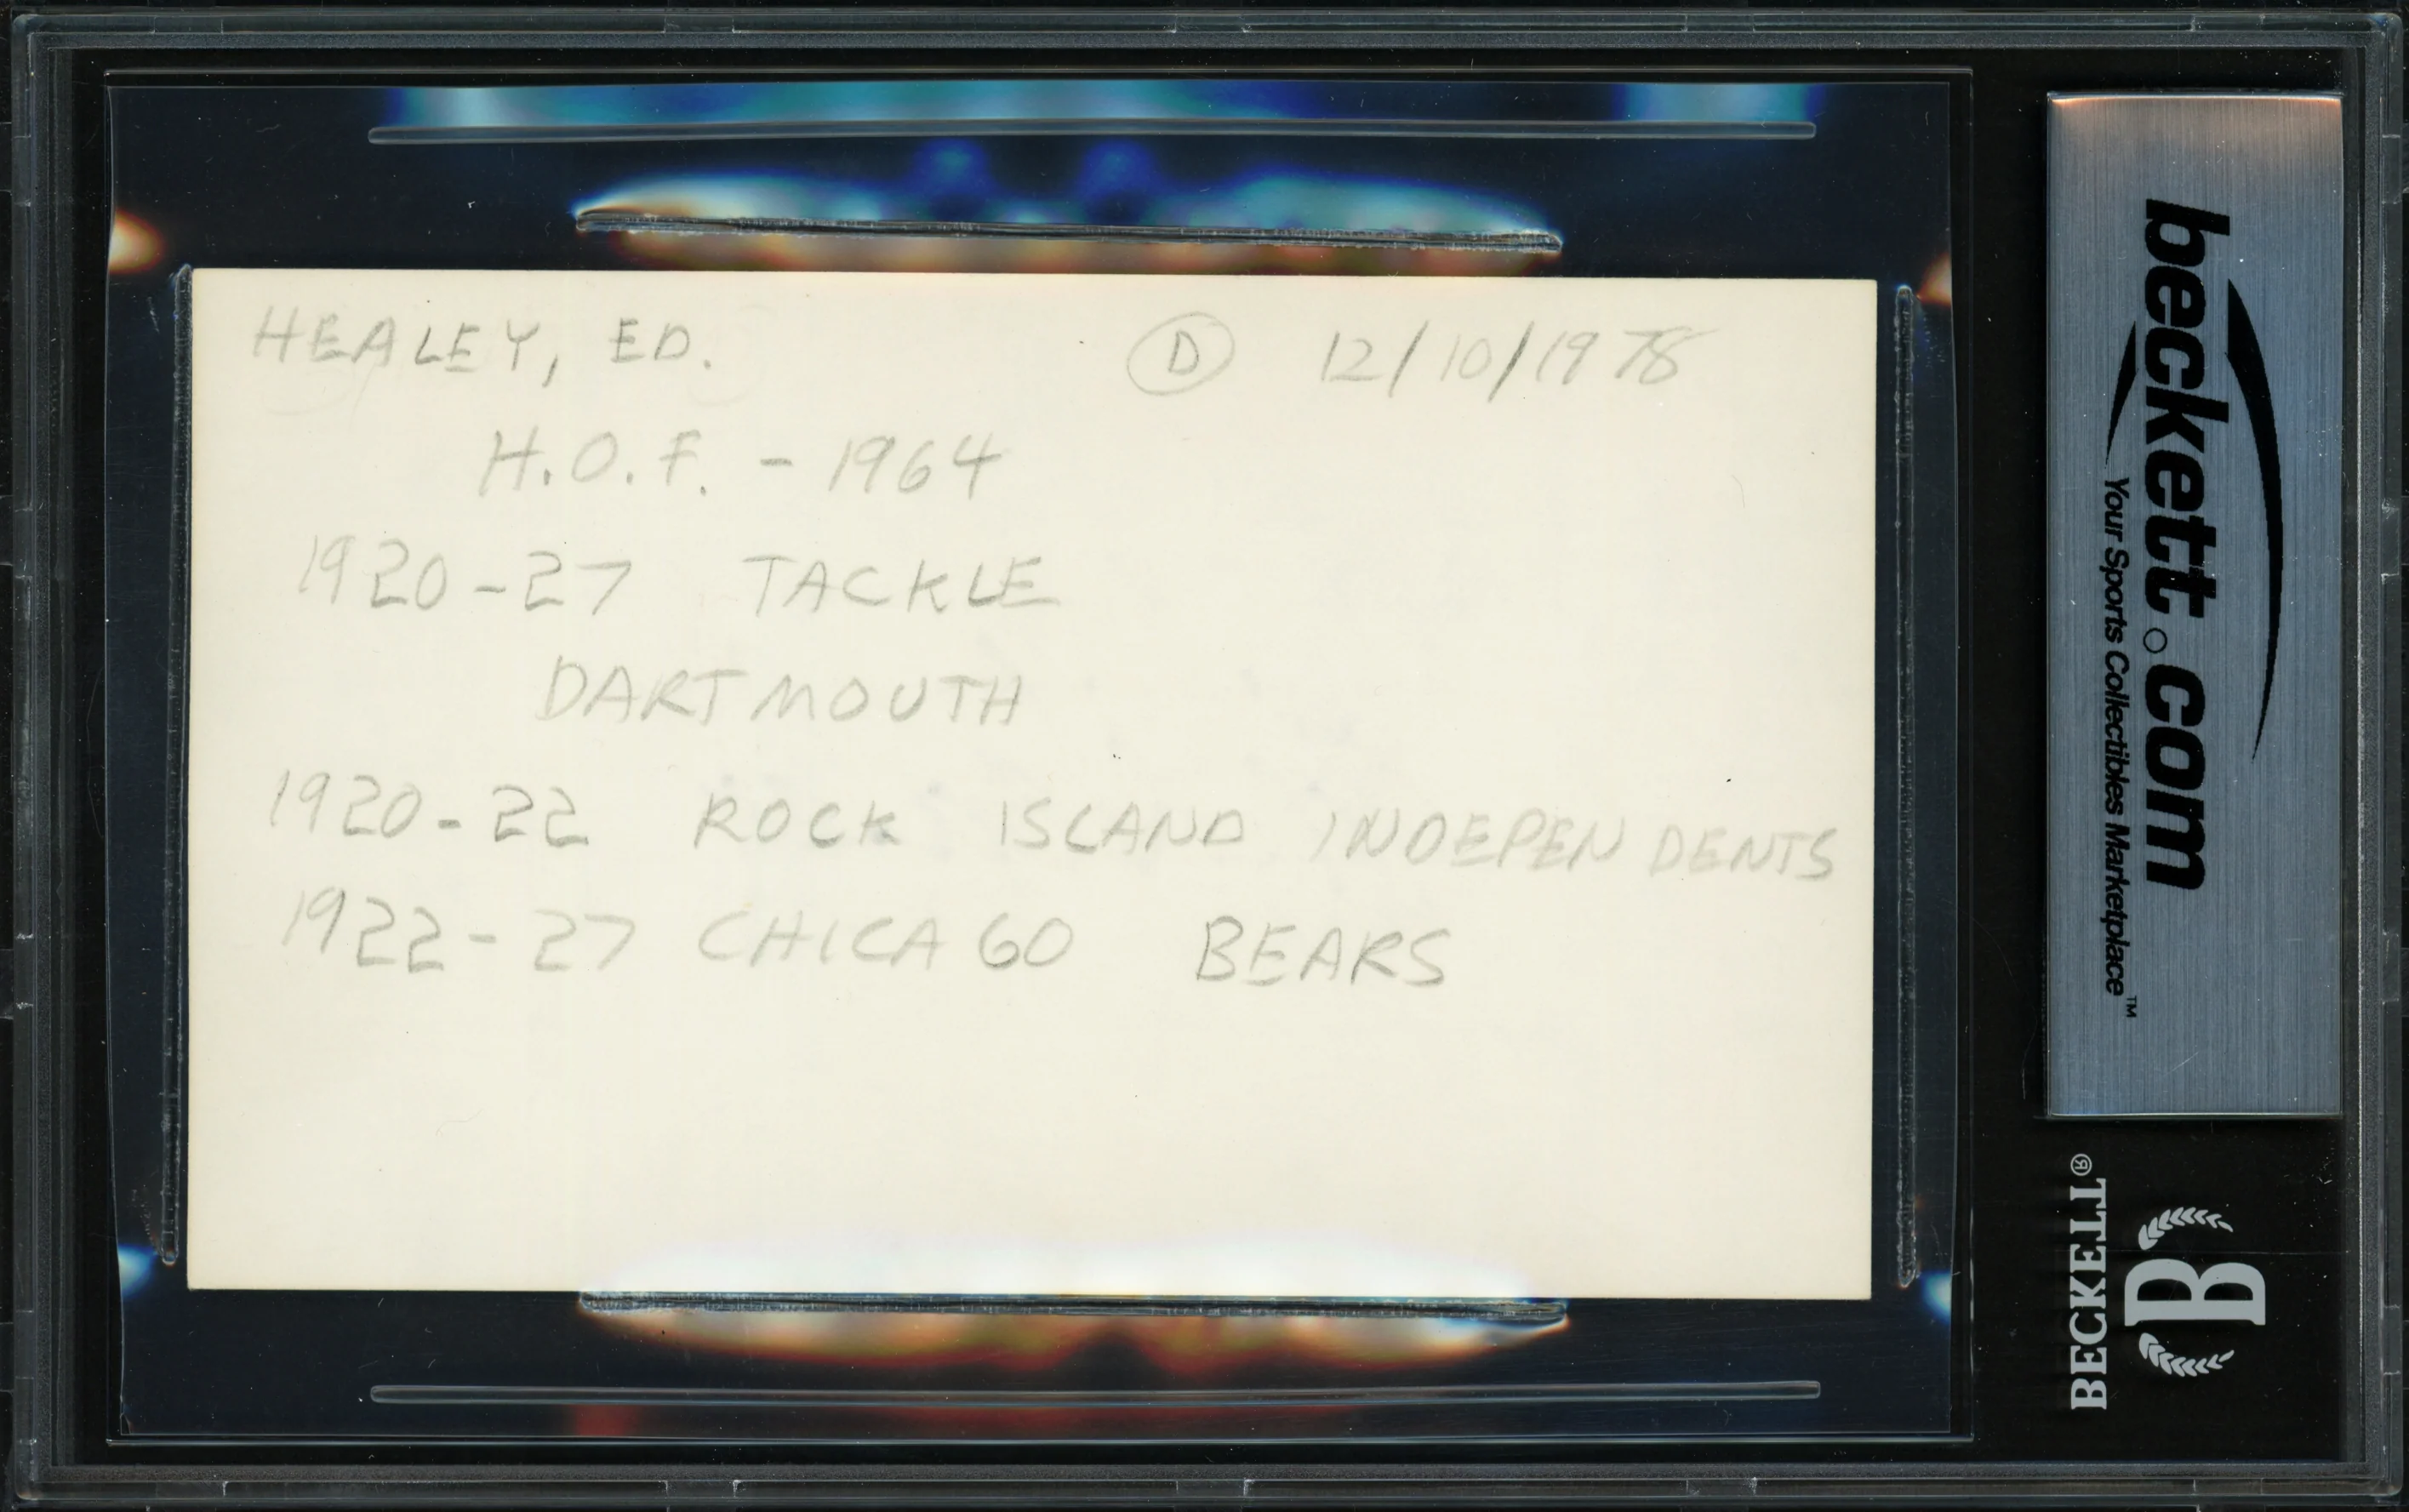 HEALEY, ED. D 12/10/1978
H.O.F. - 1964
1920-27 TACKLE
DARTMOUTH
1920-22 ROCK ISLAND INDEPENDENTS
1922-27 CHICAGO BEARS
beckett.com
Your Sports Collectibles Marketplace™
BECKETT®
B